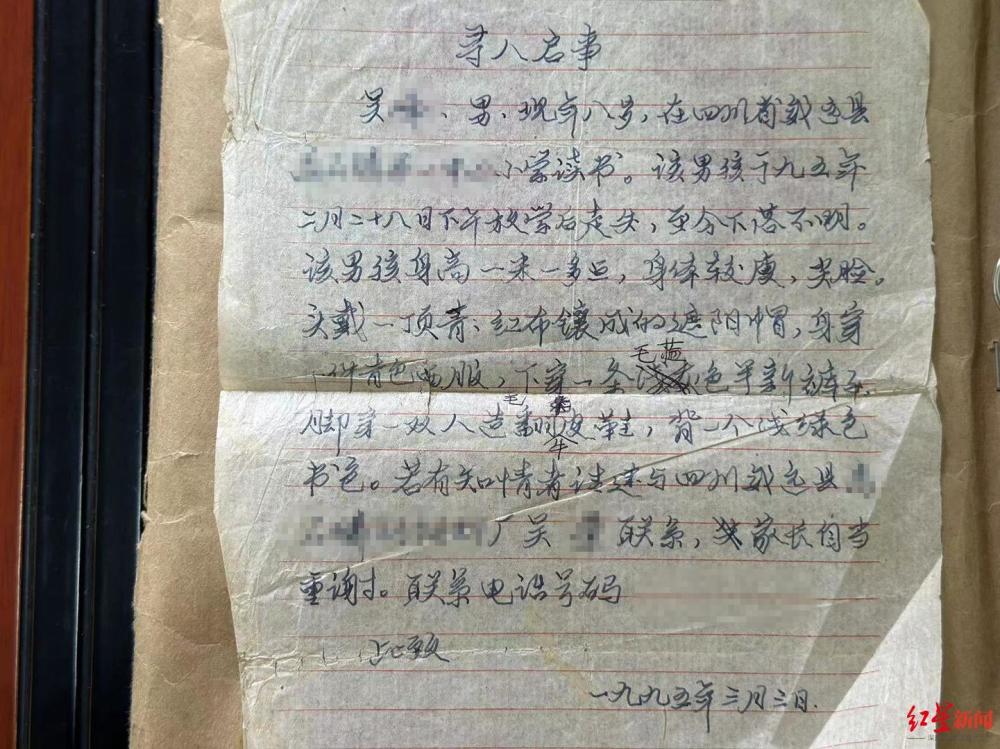 寻人启事
吴 、男、现年八岁，在四川省威远县
小学读书。该男孩于九五年
二月二十八日下午放学后走失，至今下落不明。
该男孩身高一米一多点，身体较瘦，尖脸。
头戴一顶青、红布镶成的遮阳帽，身穿
一件青色西服，下穿一条毛蓝色半新裤子，
脚穿一双人造毛牛皮鞋，背一个浅绿色
书包。若有知情者请速与四川威远县
厂吴 联系，家长自当
重谢。联系电话号码
此致
一九九五年三月三日.
红星新闻